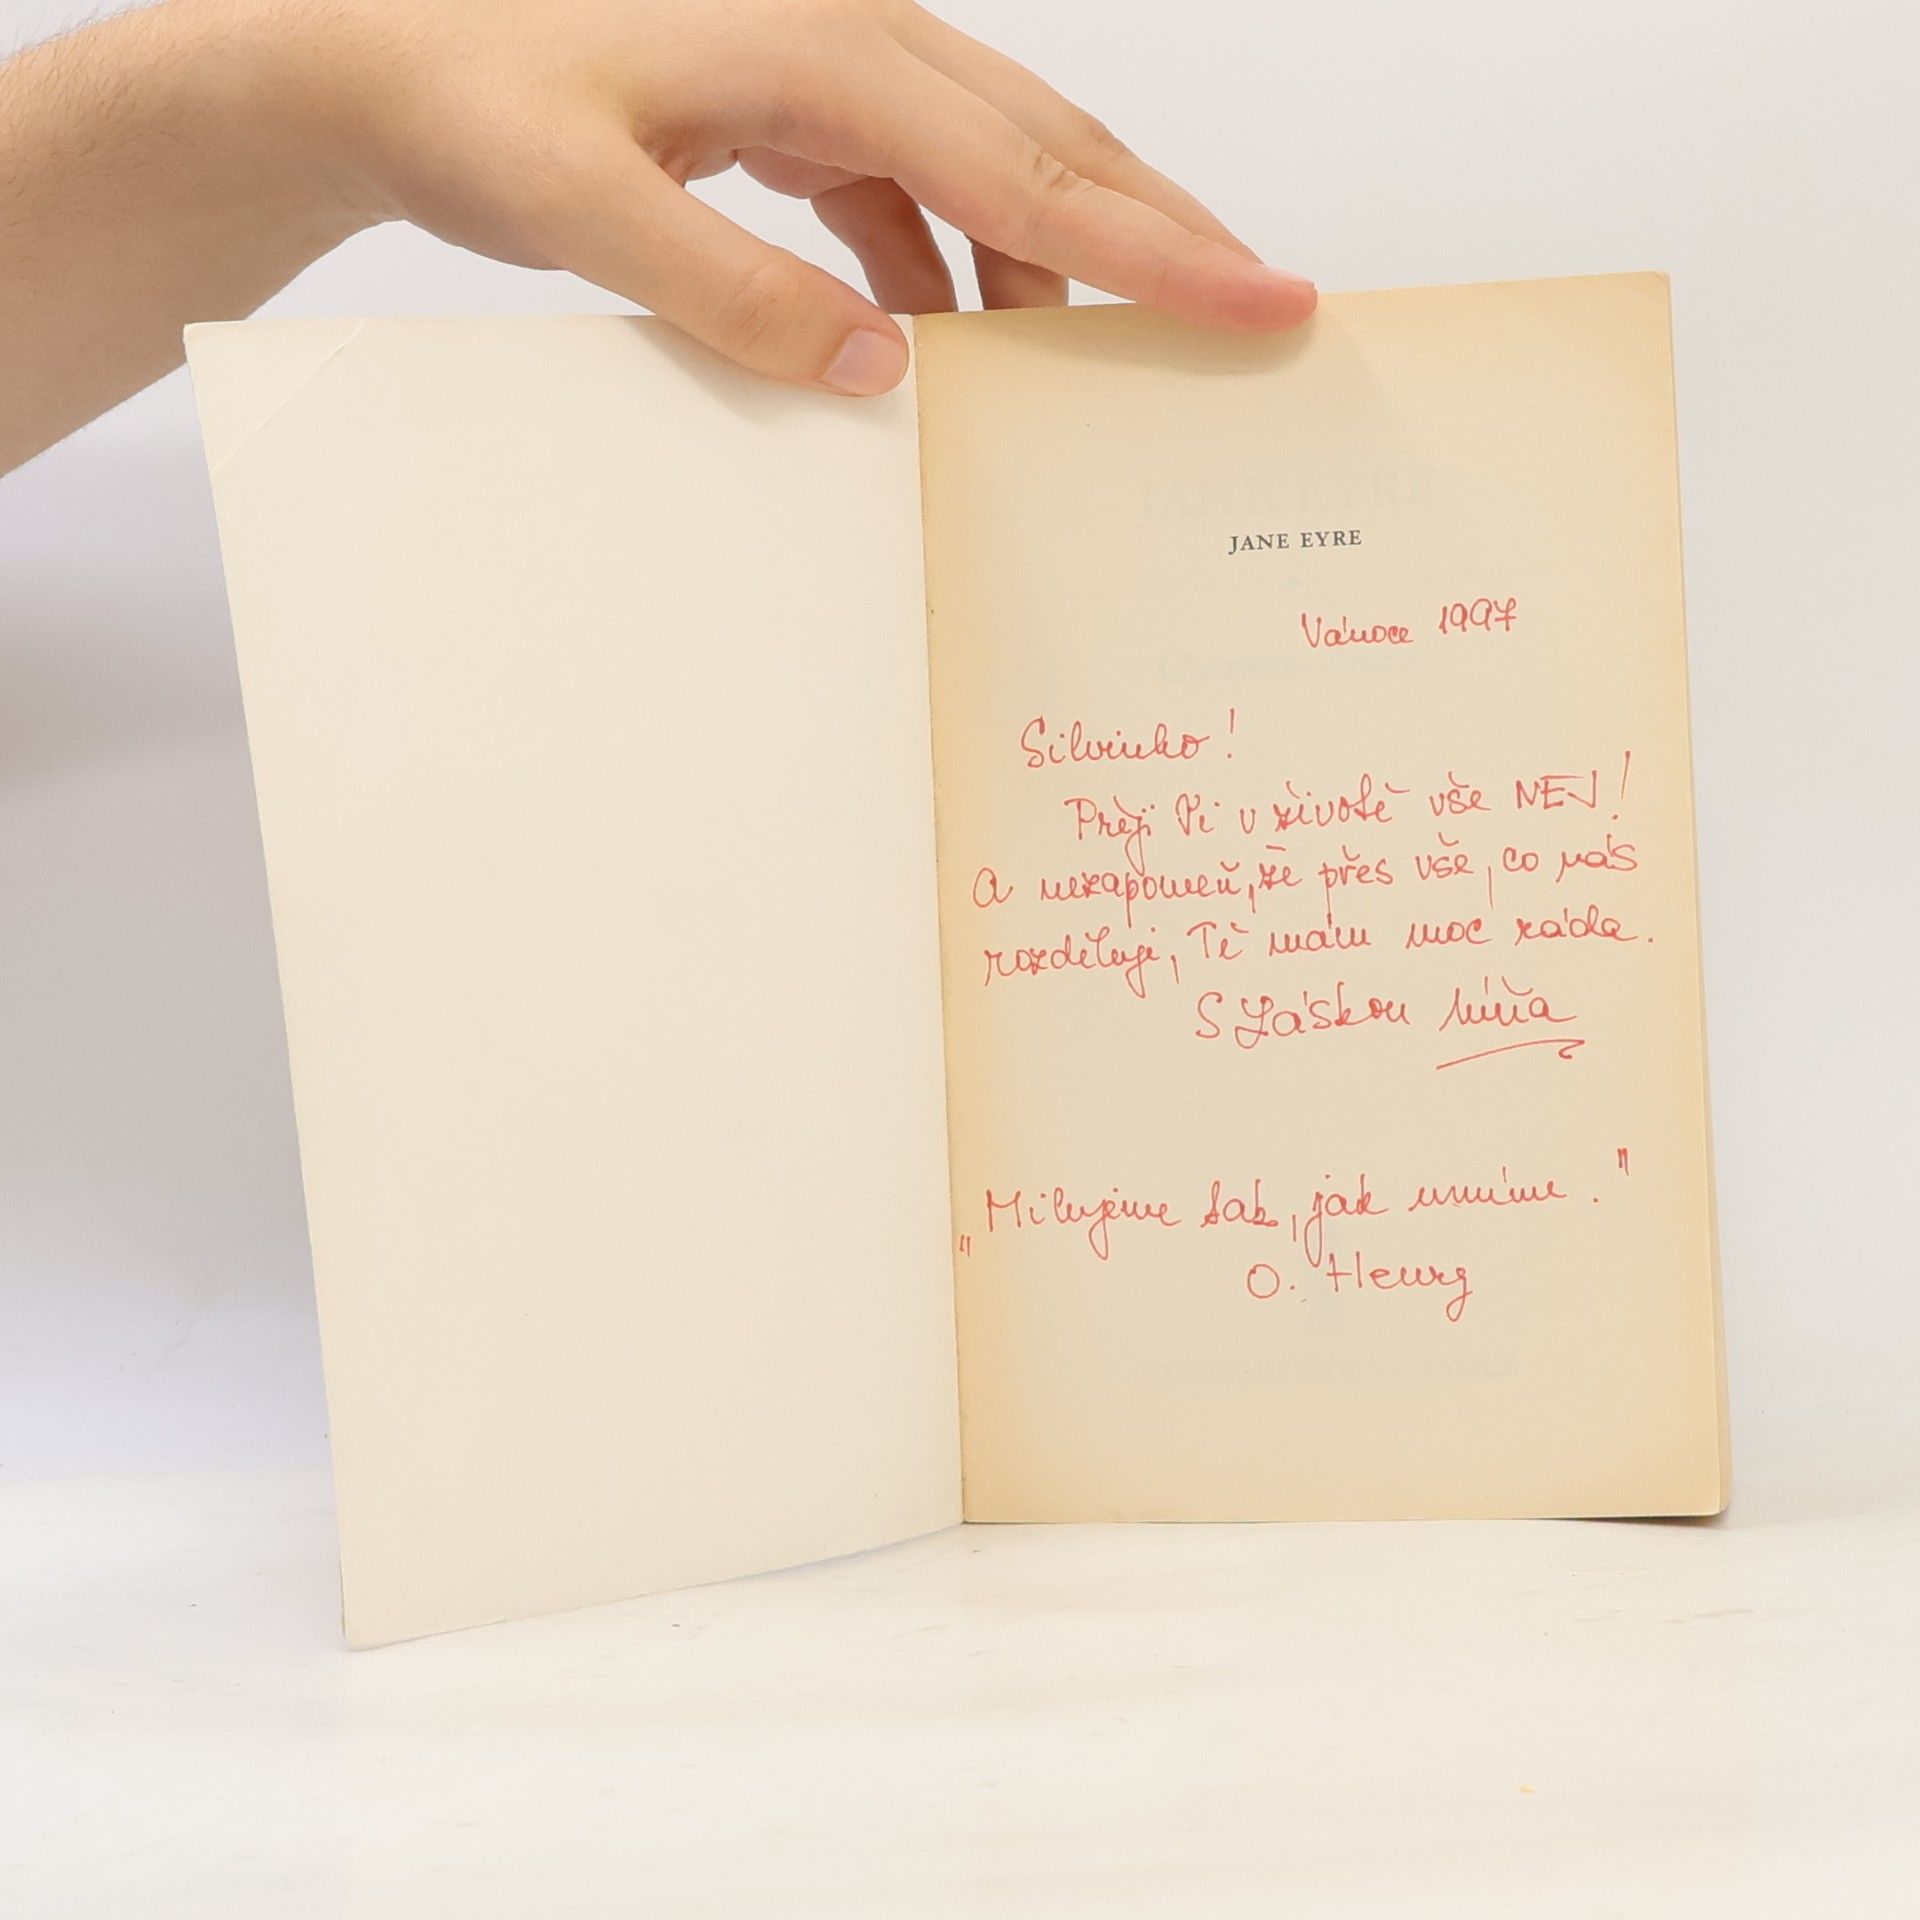 JANE EYRE
Vánoce 1997
Silvinko!
Přeji Ti v životě vše NEJ!
A nezapomeň, že přes vše, co nás
rozděluje, Tě mám moc ráda.
S Láskou Míňa
„Milujeme tak, jak umíme."
O. Henry